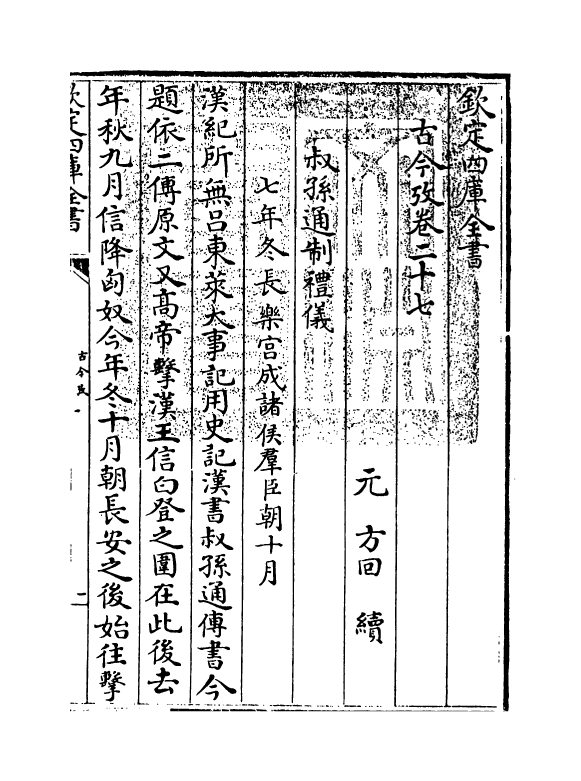 欽定四庫全書
古今攷卷二十七
元　方回　續
叔孫通制禮儀
七年冬長樂宫成諸侯羣臣朝十月
漢紀所無吕東萊大事記用史記漢書叔孫通傳書今
題依二傳原文又髙帝擊漢王信白登之圍在此後去
年秋九月信降匈奴今年冬十月朝長安之後始往擊
欽定四庫全書
古今攷
二